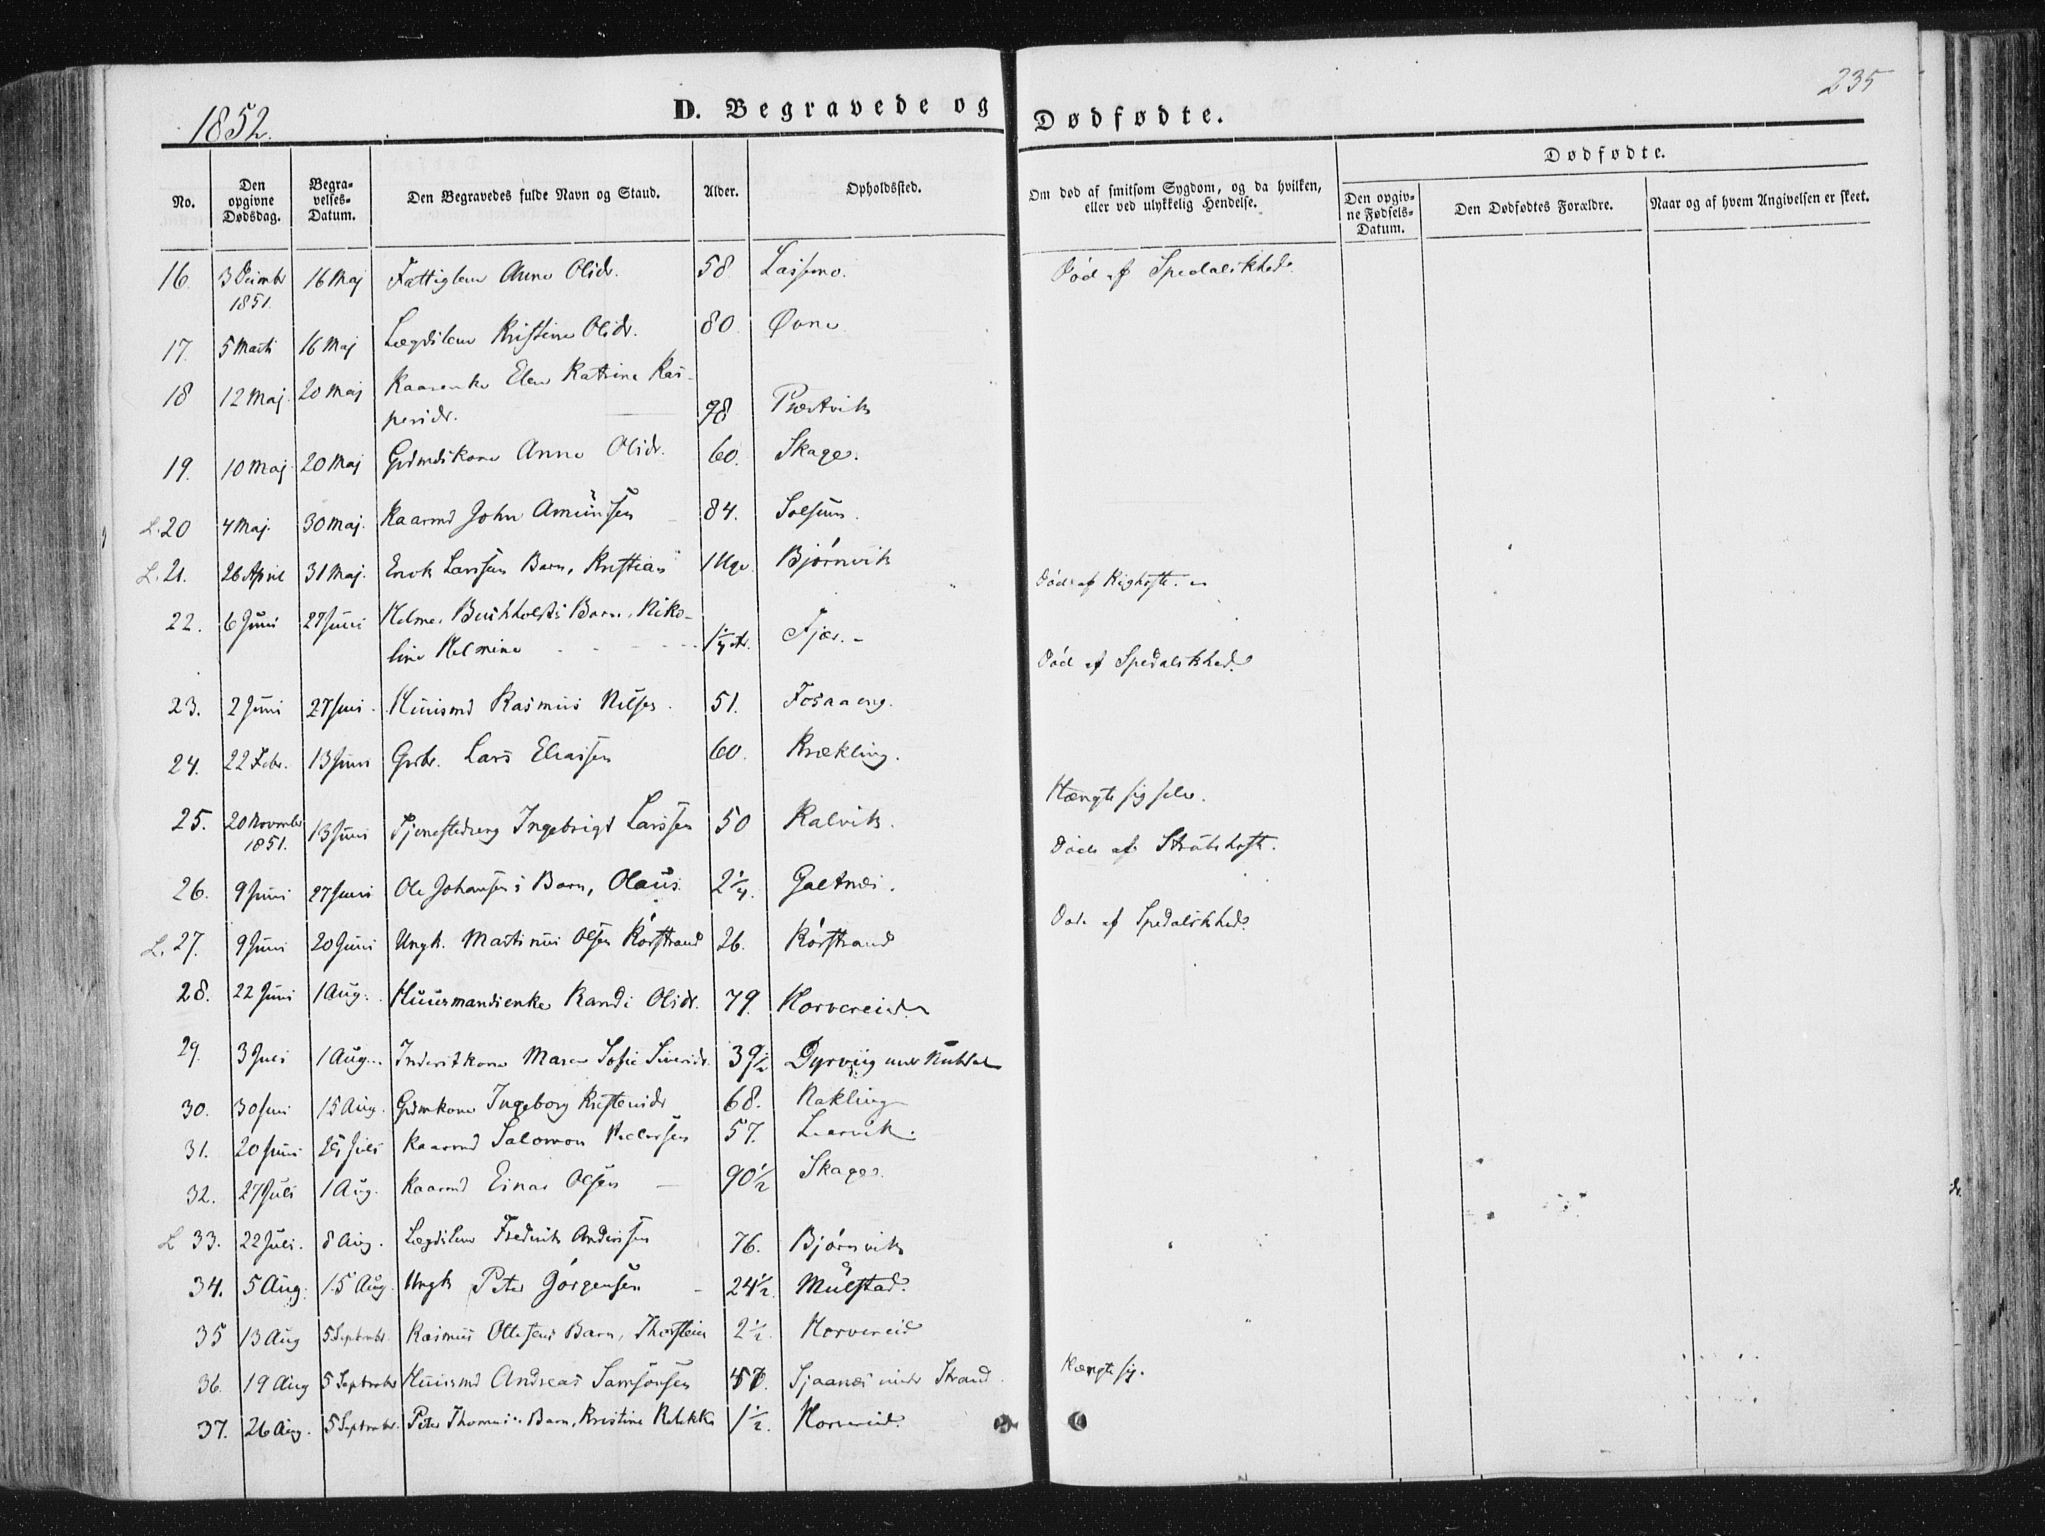 1852.
D. Begravede og Dødfødte.
235
No.
Den opgivne Dødsdag.
Begravelses-Datum.
Den Begravedes fulde Navn og Stand.
Alder.
Opholdssted.
Om død af smitsom Sygdom, og da hvilken, eller ved ulykkelig Hendelse.
Dødfødte.
Den opgivne Fødsels-Datum.
Den Dødfødtes Forældre.
Naar og af hvem Angivelsen er skeet.
16. 3 Decmbr 1851. 16 Maj Fattiglem Anne Olidr. 58. Død af Spedalskhed.
17. 5 Marti 16 Maj Lægdslem Kristine Olidr. 80. Øvne
18 12 Maj 20 Maj Kaarenke Elen Katrine Kasperidr. 98 Præstvik
19. 10 Maj 20 Maj Grdmdskone Anne Olidr. 60. Skage.
L. 20 4 Maj. 30 Maj. Kaarmd John Amunsen 84. Solsum.
L. 21. 26 April 31 Maj. Erik Larsens Barn, Kristian Bjørnvik Død af Kighoste.
22. 6 Juni 27 Juni Barn, Nikoline Helmine Fjær. Død af Spedalskhed
23. 2 Juni 27 Juni. Huusmd Rasmus Nilsen. 51. Fosaaeng.
24. 22 Febr. 13 Juni Grbr. Lars Eliassen 60. Krækling.
25. 20 Novmbr 1851. 13 Juni Ingebrigt Larssen 50 Kalvik. Hængte sig selv.
26. 9 Juni 27 Juni Ole Johansens Barn, Olaus. 2¼. Galtnes. Døde af Strubehoste.
L. 27. 9 Juni 20 Juni Ungk. Martinus Olsen Rørstrand 26. Rørstrand Døde af Spedalskhed.
28. 22 Juni 1 Aug. Huusmandsenke Randi Olidr. 79. Horvereid.
29. 3 Juli 1 Aug. Inderstkone Maren Sofie Siversdr. 39½ under
30. 30 Juni 15 Aug. Grdmkone Ingeborg Kristensdr 68. Rækling
31. 20 Juni 25 Juli Kaarmd Salomon Pedersen 57. Leervik.
32. 27 Juli 1 Aug. Kaarmd Einar Olsen 90½ Skage.
L 33. 22 Juli. 8 Aug. Lægdslem Frederik Anderssen 76. Bjørnvik
34. 5 Aug. 15 Aug. Ungk Peter Jørgensen 24½. Mulstad.
35 13 Aug 5 Septmbr. Rasmus Ottesens Barn, Thorstein 2½. Horvereid
36. 19 Aug 5 Septmbr Huusmd Andreas Samsonsen Sjaanes under Strand. Hængte sig.
37. 26 Aug. 5 Septmbr. Peter Barn, Kristine Rebekka 1½. Horvereid.